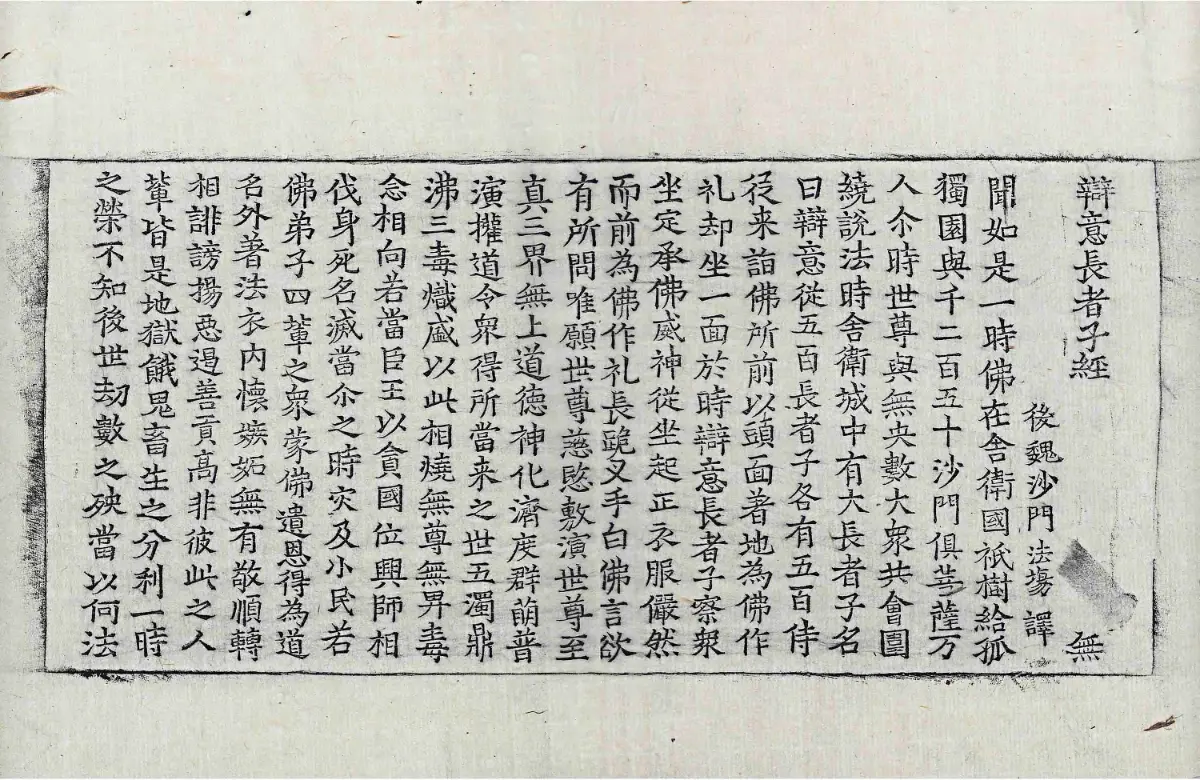 辯意長者子經 無
後魏沙門 法場 譯
聞如是一時佛在舍衛國祇樹給孤
獨園與千二百五十沙門俱菩薩万
人尒時世尊與無央數大衆共會圍
繞說法時舍衛城中有大長者子名
曰辯意從五百長者子各有五百侍
從来詣佛所前以頭面著地為佛作
礼却坐一面於時辯意長者子察衆
坐定承佛威神從坐起正衣服儼然
而前為佛作礼長跪叉手白佛言欲
有所問唯願世尊慈愍敷演世尊至
真三界無上道德神化濟度群萠普
演攉道令衆得所當来之世五濁鼎
沸三毒熾盛以此相燒無尊無卑毒
念相向若當臣王以貪國位興師相
伐身死名滅當尒之時灾及小民若
佛弟子四輩之衆蒙佛遺恩得為道
名外著法衣內懷嫉妬無有敬順轉
相誹謗揚惡遏善貢高非彼此之人
輩皆是地獄餓鬼畜生之分利一時
之榮不知後世劫數之殃當以何法